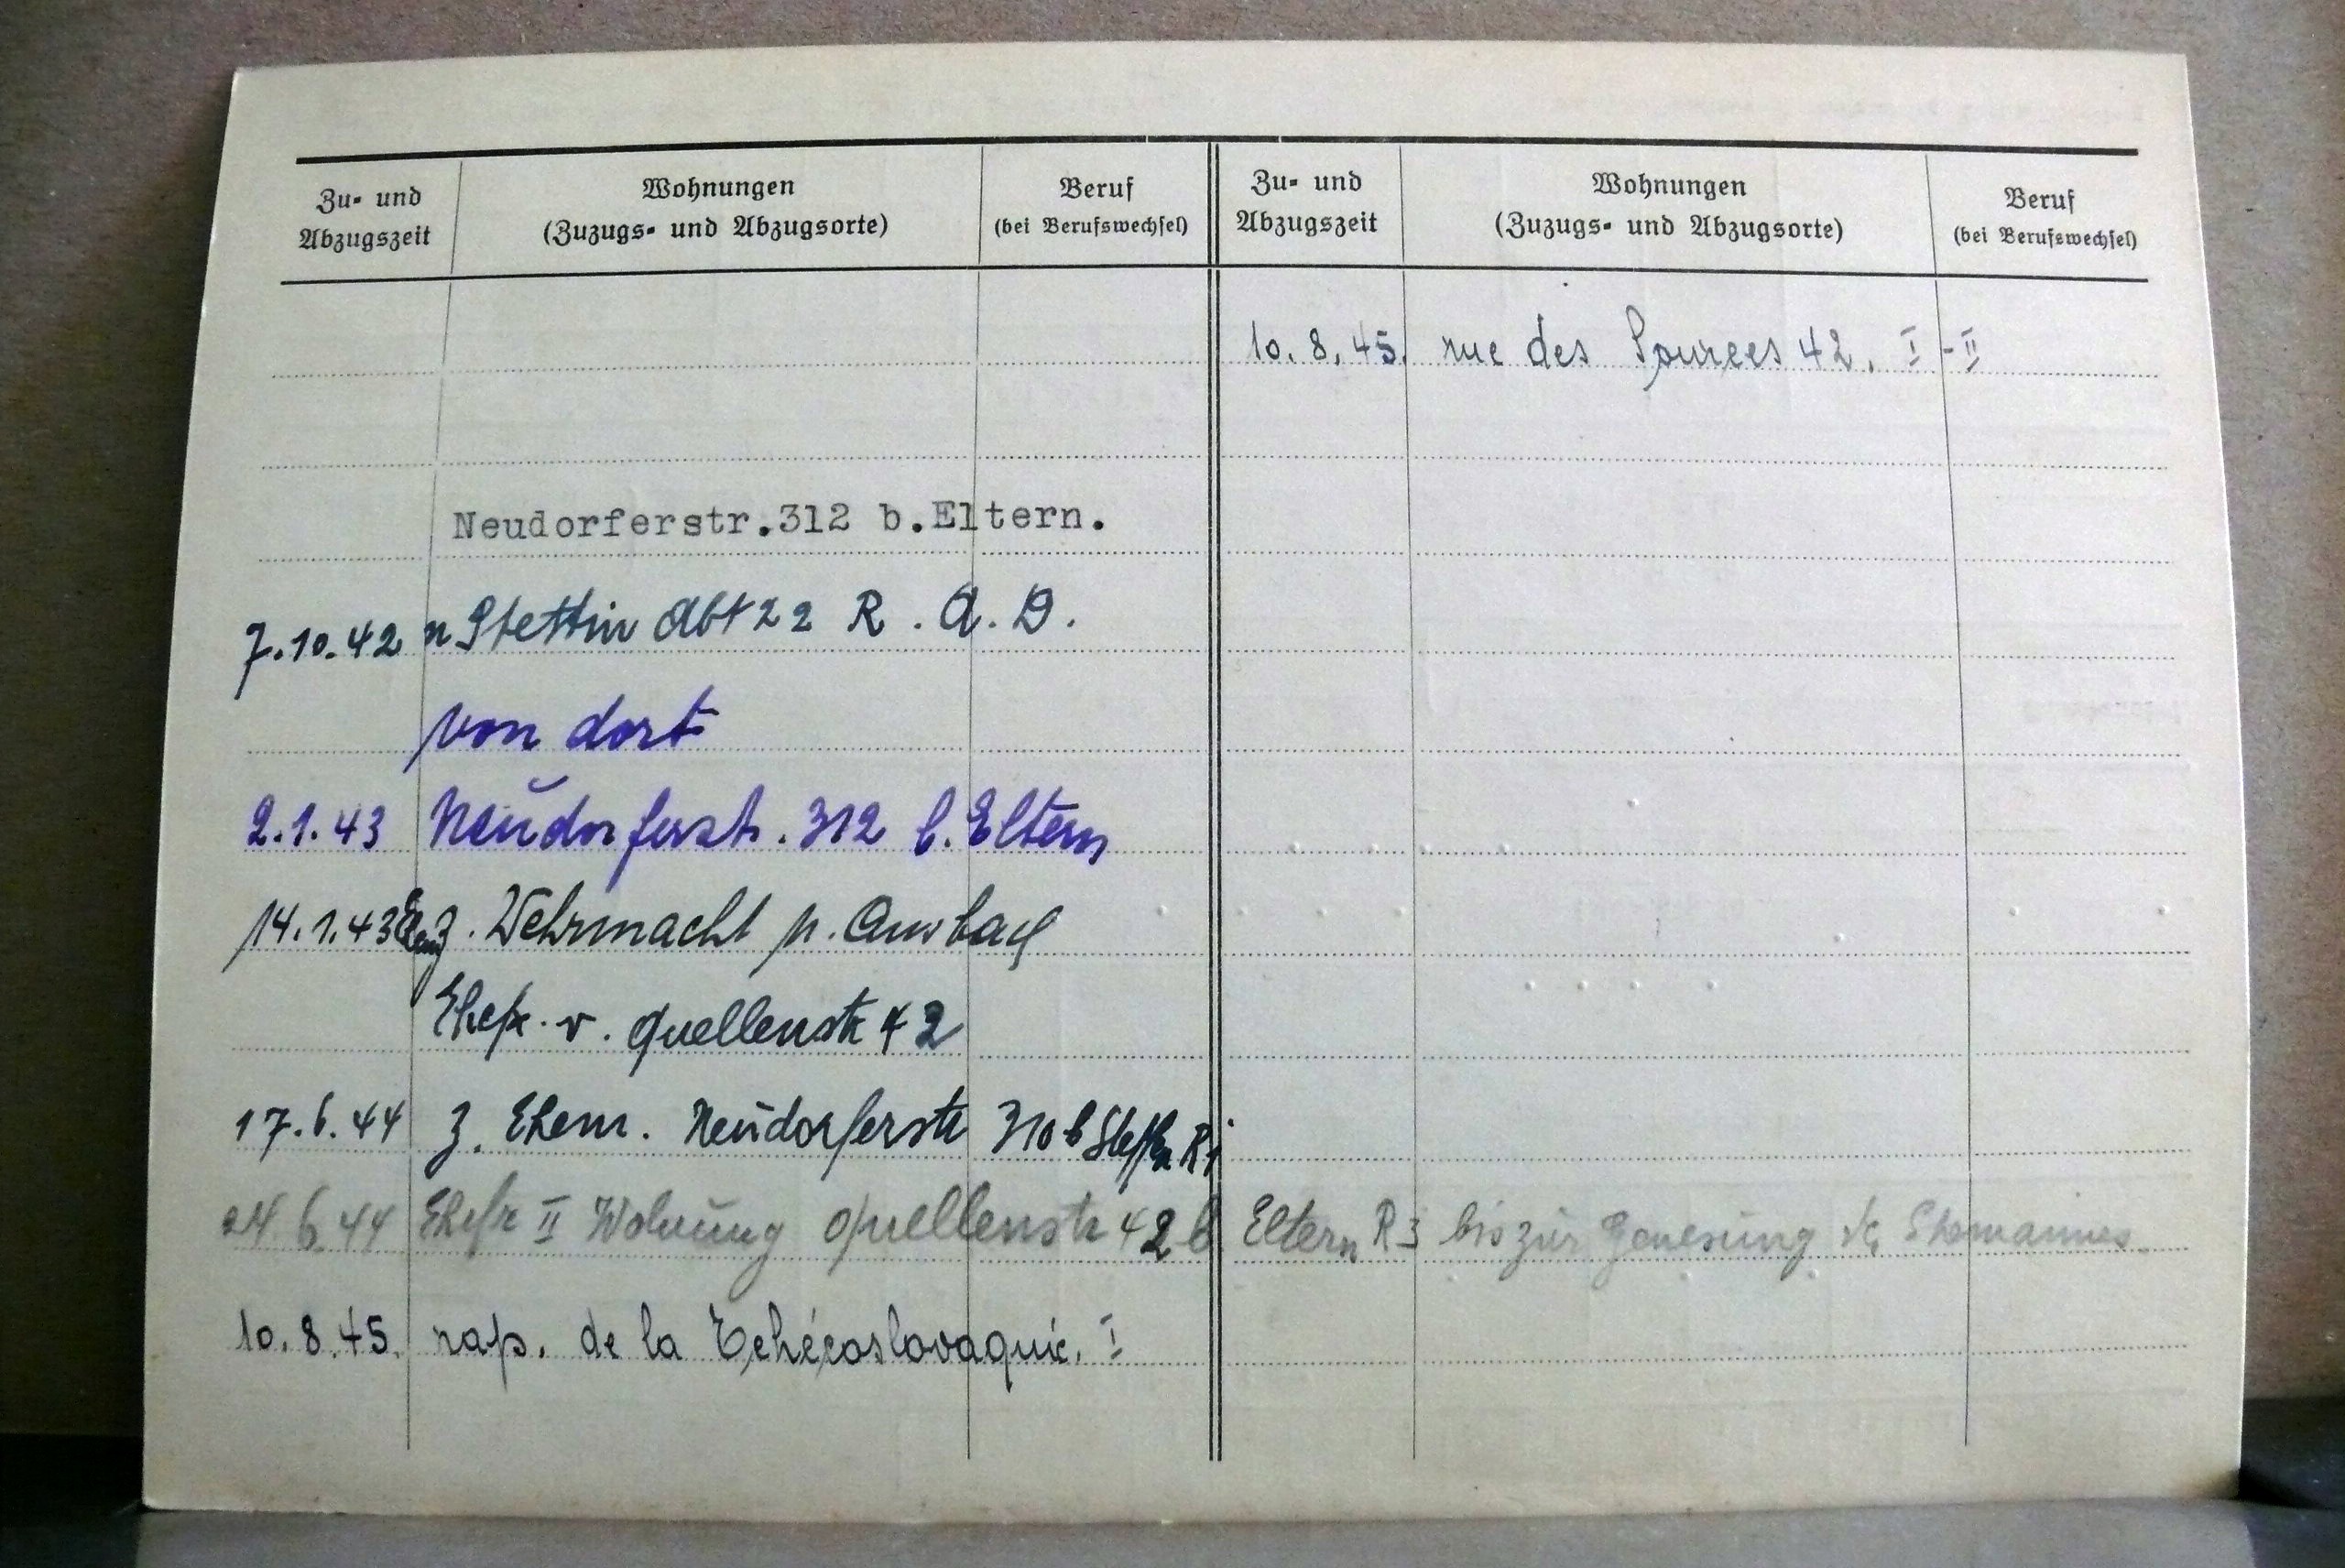 Zu- und Abzugszeit
Wohnungen
(Zuzugs- und Abzugsorte)
Beruf
(bei Berufswechsel)
Neudorferstr.312 b.Eltern.
7.10.42 n Stettin Abt 22 R.A.D.
von dort
2.1.43 Neudorferstr. 312 b. Eltern
14.1.43 z. Wehrmacht n.
Ehefr. v. Quellenstr 42
17.6.44 z. Ehem. Neudorferstr 310 b
24.6.44 Ehefr II Wohnung Quellenstr 42 b Eltern R 3 bis zur Genesung des Ehemannes.
10.8.45. rap. de la Tchécoslovaquie. I
Zu- und Abzugszeit
Wohnungen
(Zuzugs- und Abzugsorte)
Beruf
(bei Berufswechsel)
10.8.45. rue des Sources 42. I-II